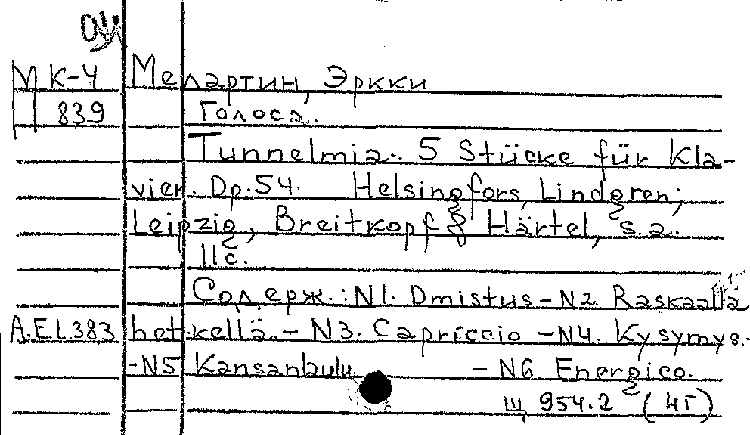 МК-4 Мелартин, Эркки
839 Голоса.
Tunnelmia. 5 Stücke für Kla-
vier. Op. 54. Helsingfors, Lindgren;
Leipzig, Breitkopf & Härtel, s.a.
11c.
Содерж.: N1. Omistus - N2 Raskaalla
A.E1.383 hetkellä. - N3. Capriccio - N4. Kysymys.
-N5 Kansanlulu - N6 Energico.
Щ 954.2 (4г)